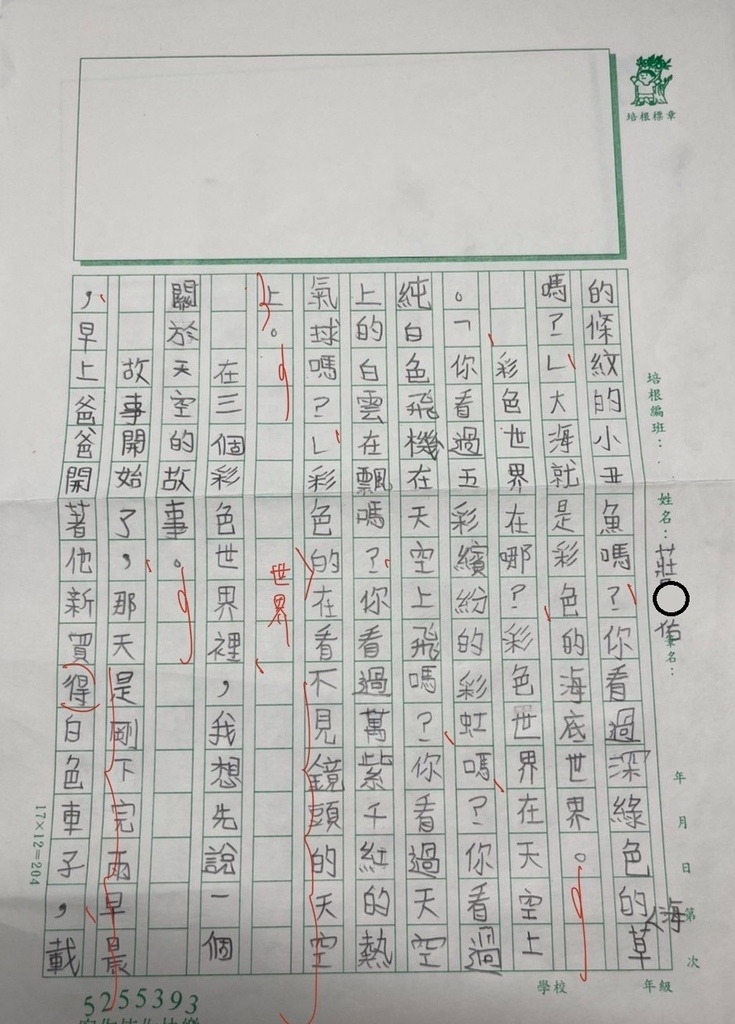 培根標章
培根編班：
姓名：莊 偤
筆名：
年 月 日 第 次
學校 年級
的條紋的小丑魚嗎？你看過深綠色的海草
嗎？」大海就是彩色的海底世界。
彩色世界在哪？彩色世界在天空上
。「你看過五彩繽紛的彩虹嗎？你看過
純白色飛機在天空上飛嗎？你看過天空
上的白雲在飄嗎？你看過萬紫千紅的熱
氣球嗎？」彩色的在看不見鏡頭的天空
世界
上。
在三個彩色世界裡，我想先說一個
關於天空的故事。
故事開始了，那天是剛下完雨早晨
，早上爸爸開著他新買得白色車子，載
17×12=204
5255393